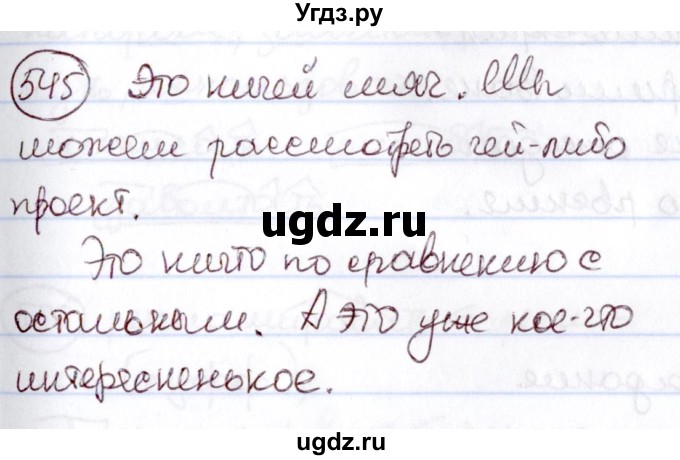 Угдз.ру
545 Это ничей мяч. Мы
можем рассмотреть чей-либо
проект.
ugdz.ru
Это ничто по сравнению с
остальным. А это уже кое-что
интересненькое.
ugdz.ru